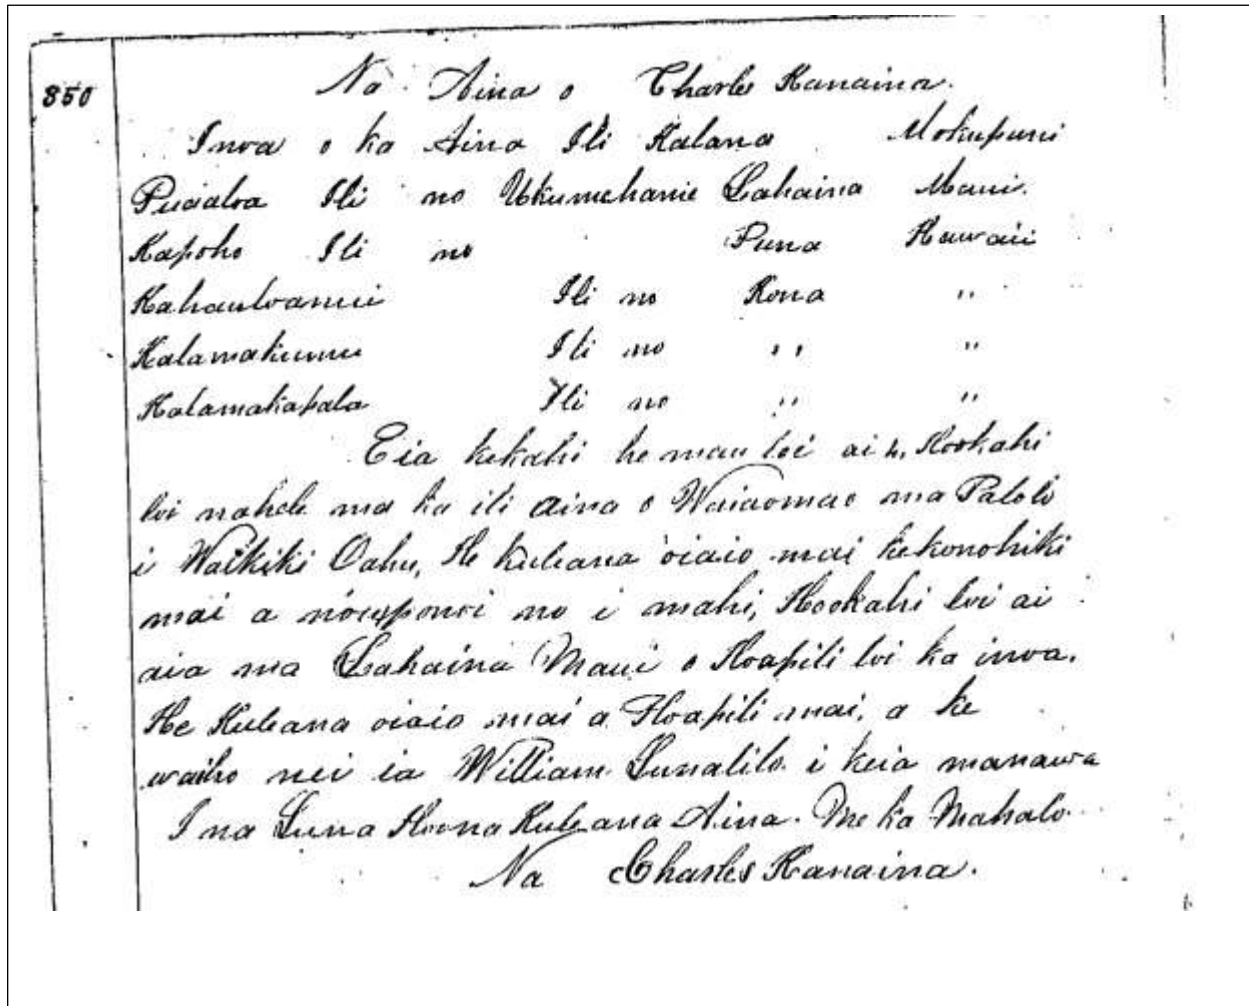 850
Na Aina o Charles Kanaina.
Inoa o ka Aina Ili Kalana Mokupuni
Puaaloa Ili no Ukumehanie Lahaina Maui.
Kapoho Ili no Puna Hawaii
Kahauloanui Ili no Kona "
Kalamakumu Ili no " "
Kalamakapala Ili no " "
Eia kekahi he mau loi ai 4, Hookahi
loi nahele ma ka ili aina o Waiaomao ma Palolo
i Waikiki Oahu, He kuleana oiaio mai ke konohiki
mai a no'u ponoi no i mahi, Hookahi loi ai
aia ma Lahaina Maui o Hoapili loi ka inoa.
He Kuleana oiaio mai a Hoapili mai, a ke
waiho nei ia William Lunalilo i keia manawa
I na Luna Hoona Kuleana Aina. Me ka Mahalo.
Na Charles Kanaina.